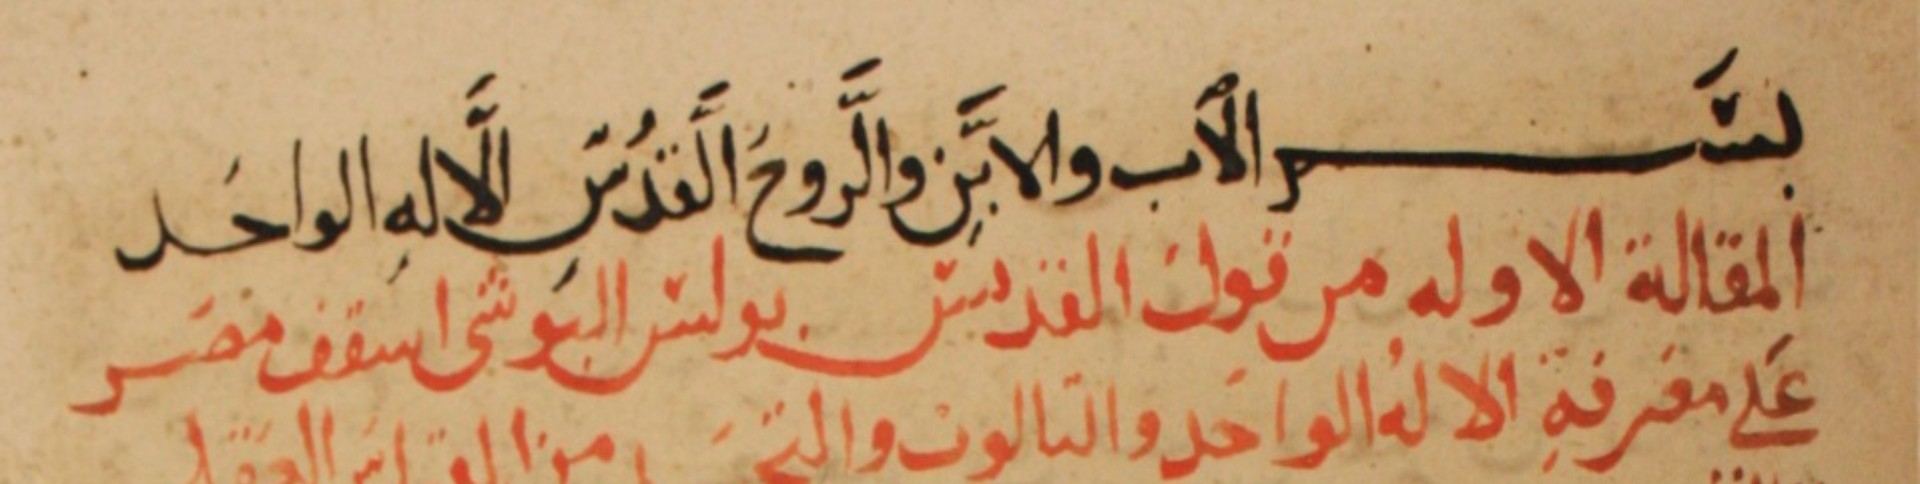 بسم الاب والابن والروح القدس الاله الواحد
المقالة الاوله من قول القديس بولس البوشى اسقف مصر
على معرفة الاله الواحد والتالوت والتجسد من القياس العقلى